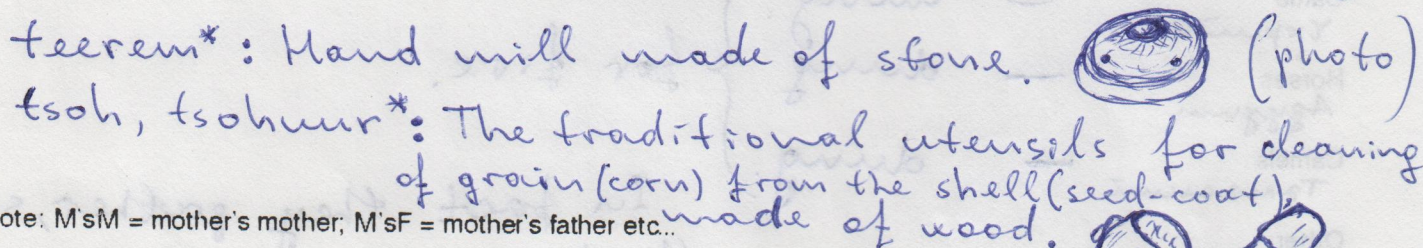 teerem*: Hand mill made of stone. (photo)
tsoh, tsohuur*: The traditional utensils for cleaning
of grain (corn) from the shell (seed-coat),
made of wood.
ote: M'sM = mother's mother; M'sF = mother's father etc...